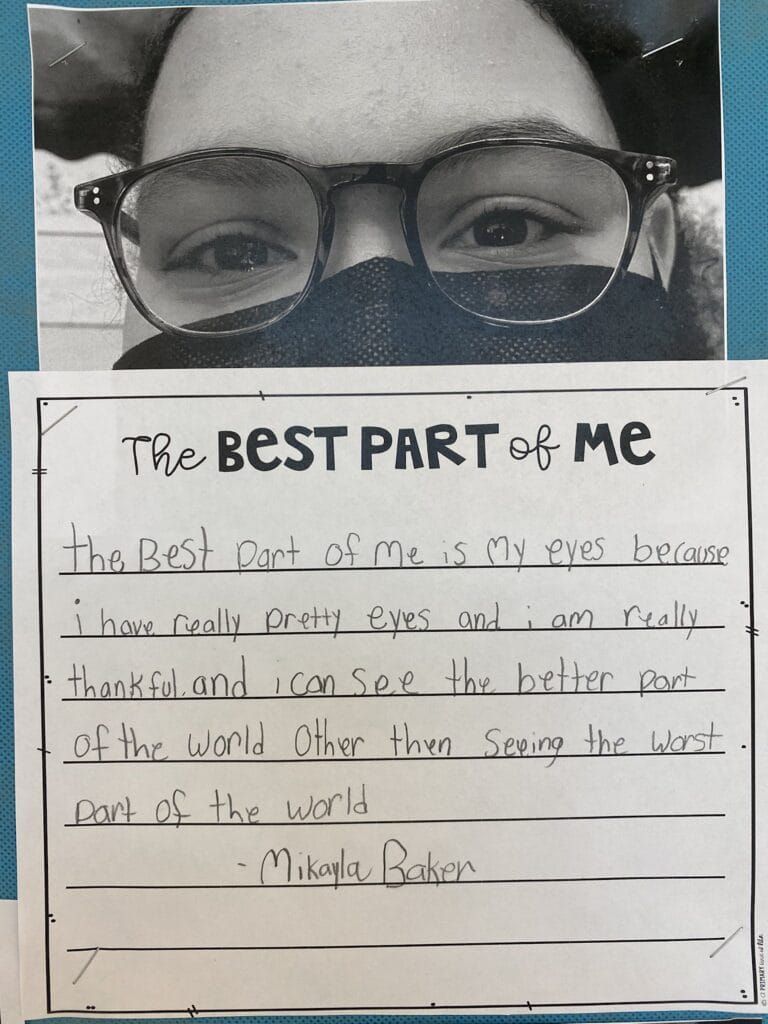 The BEST PART of Me
the Best part of me is my eyes because
i have really pretty eyes and i am really
thankful. and i can see the better part
of the world Other then seeing the worst
part of the world
- Mikayla Baker